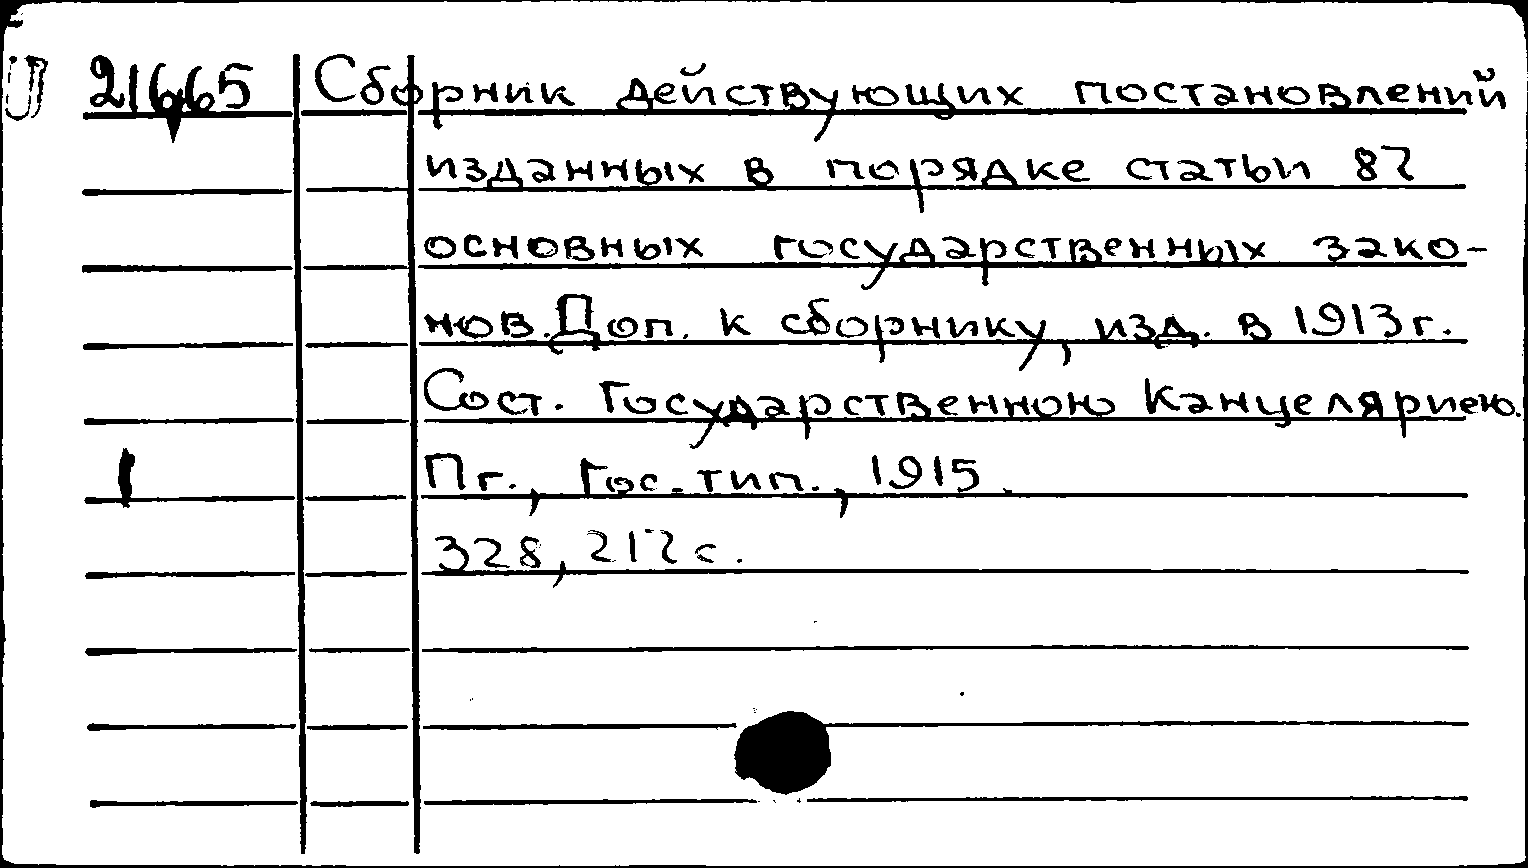 21665 Сборник действующих постановлений
изданных в порядке статьи 87
основных государственных зако-
нов. Доп. к сборнику, изд. в 1913 г.
Сост. Государственною Канцеляриею.
1 Пг., Гос. тип., 1915.
328, 217 с.